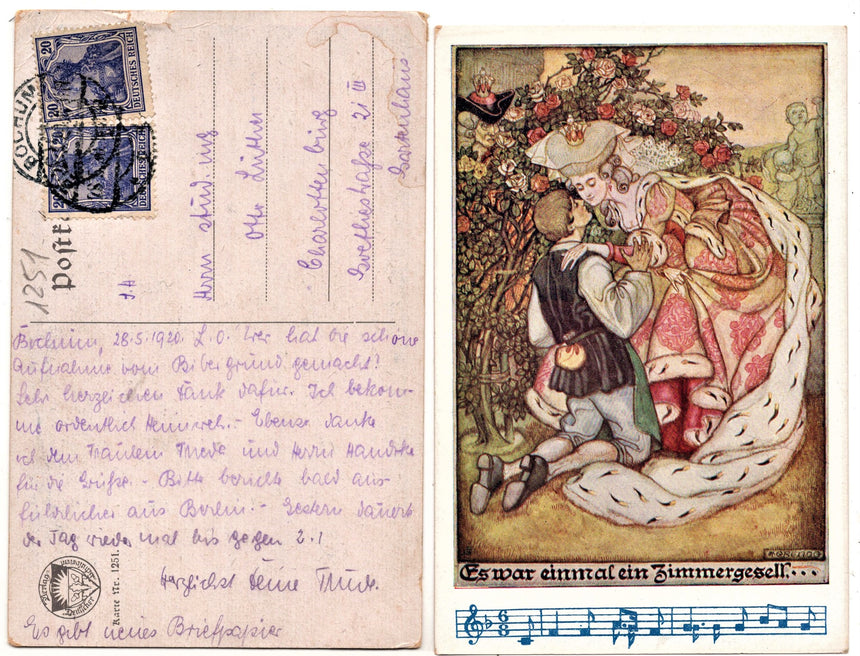 20
DEUTSCHES REICH
20
DEUTSCHES REICH
BOCHUM
1251.
Postk
F.H
Herrn stud. ing
Otto Lüther
Charlottenburg
Goethestraße 21 III
Gartenhaus
Bochum, 28.5.1920. L.O. Wer hat die schöne
Aufnahme vom Bibergrund gemacht?
Sehr herzlichen Dank dafür. Ich bekom-
me ordentlich Heimweh. - Ebenso danke
ich dem Fräulein und Herrn
für die Grüße. - Bitte berichte bald aus-
führlicher aus Berlin! - Gestern dauerte
der Tag wieder mal bis gegen 2.!
Herzlichst Deine Trude.
Es gibt neues Briefpapier
Karte Nr. 1251.
Es war einmal ein Zimmergesell...
6
8